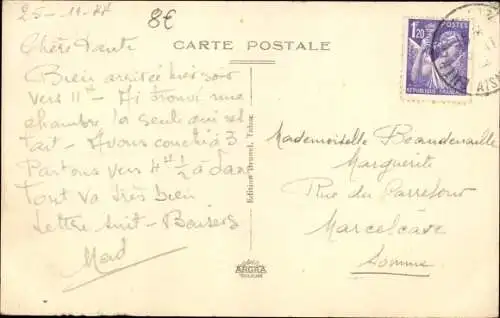 25-11-44
8€
CARTE POSTALE
1,20
POSTES
REPUBLIQUE FRANÇAISE
Chère Tante
Bien arrivée hier soir
vers 11h - Ai trouvé une
chambre la seule qui res
tait - Avons couché à 3
Partons vers 4h 1/2 à Dax
Tout va très bien
Lettre suit - Baisers
Mad
Edition Brunel, Tabac
ARGRA
Mademoiselle
Marguerite
Rue du Carrefour
Marcelcave
Somme